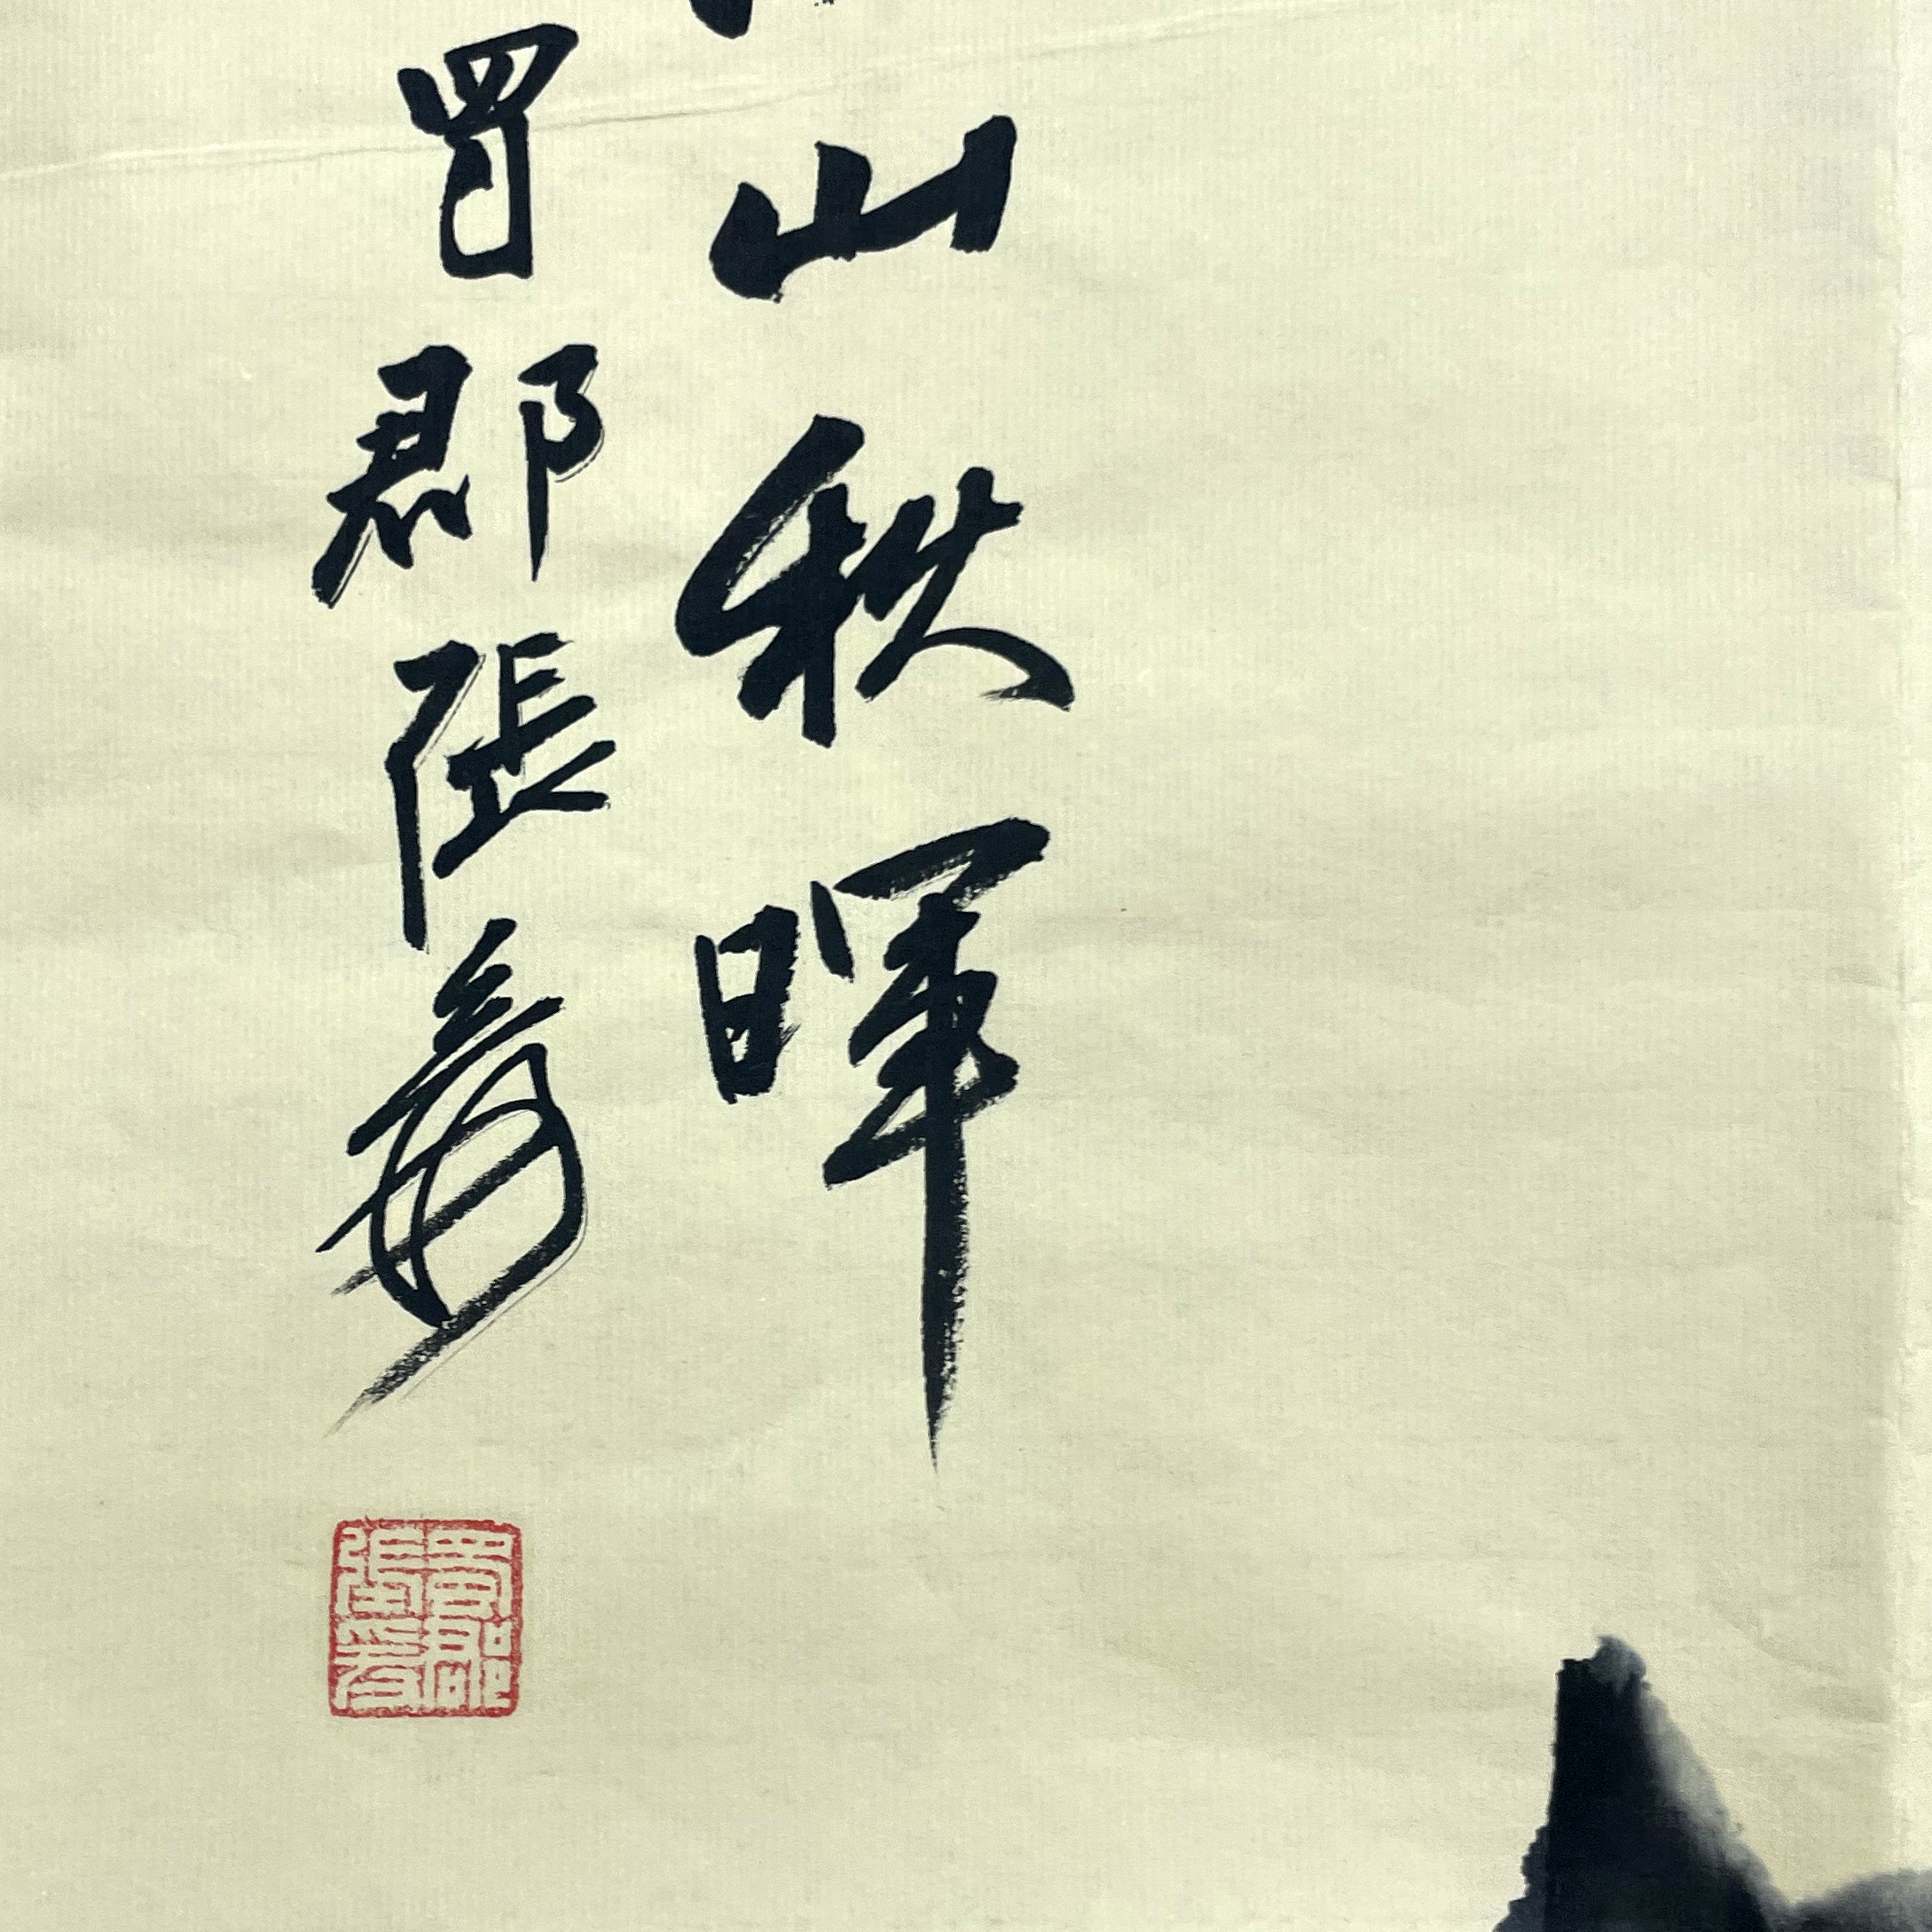 山秋暉
蜀郡張爰
蜀郡張爰